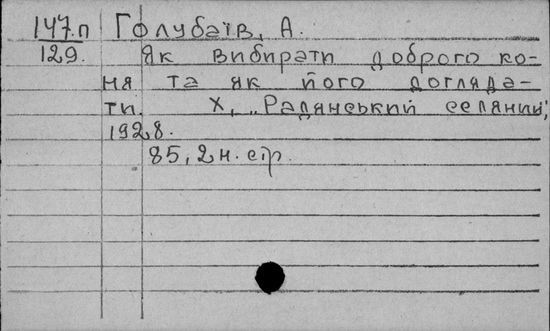 147.п Голубаїв, А.
129. Як вибирати доброго ко-
ня та як його догляда-
ти. Х, „Радянський селянин",
1928.
85, 2 н. стр.